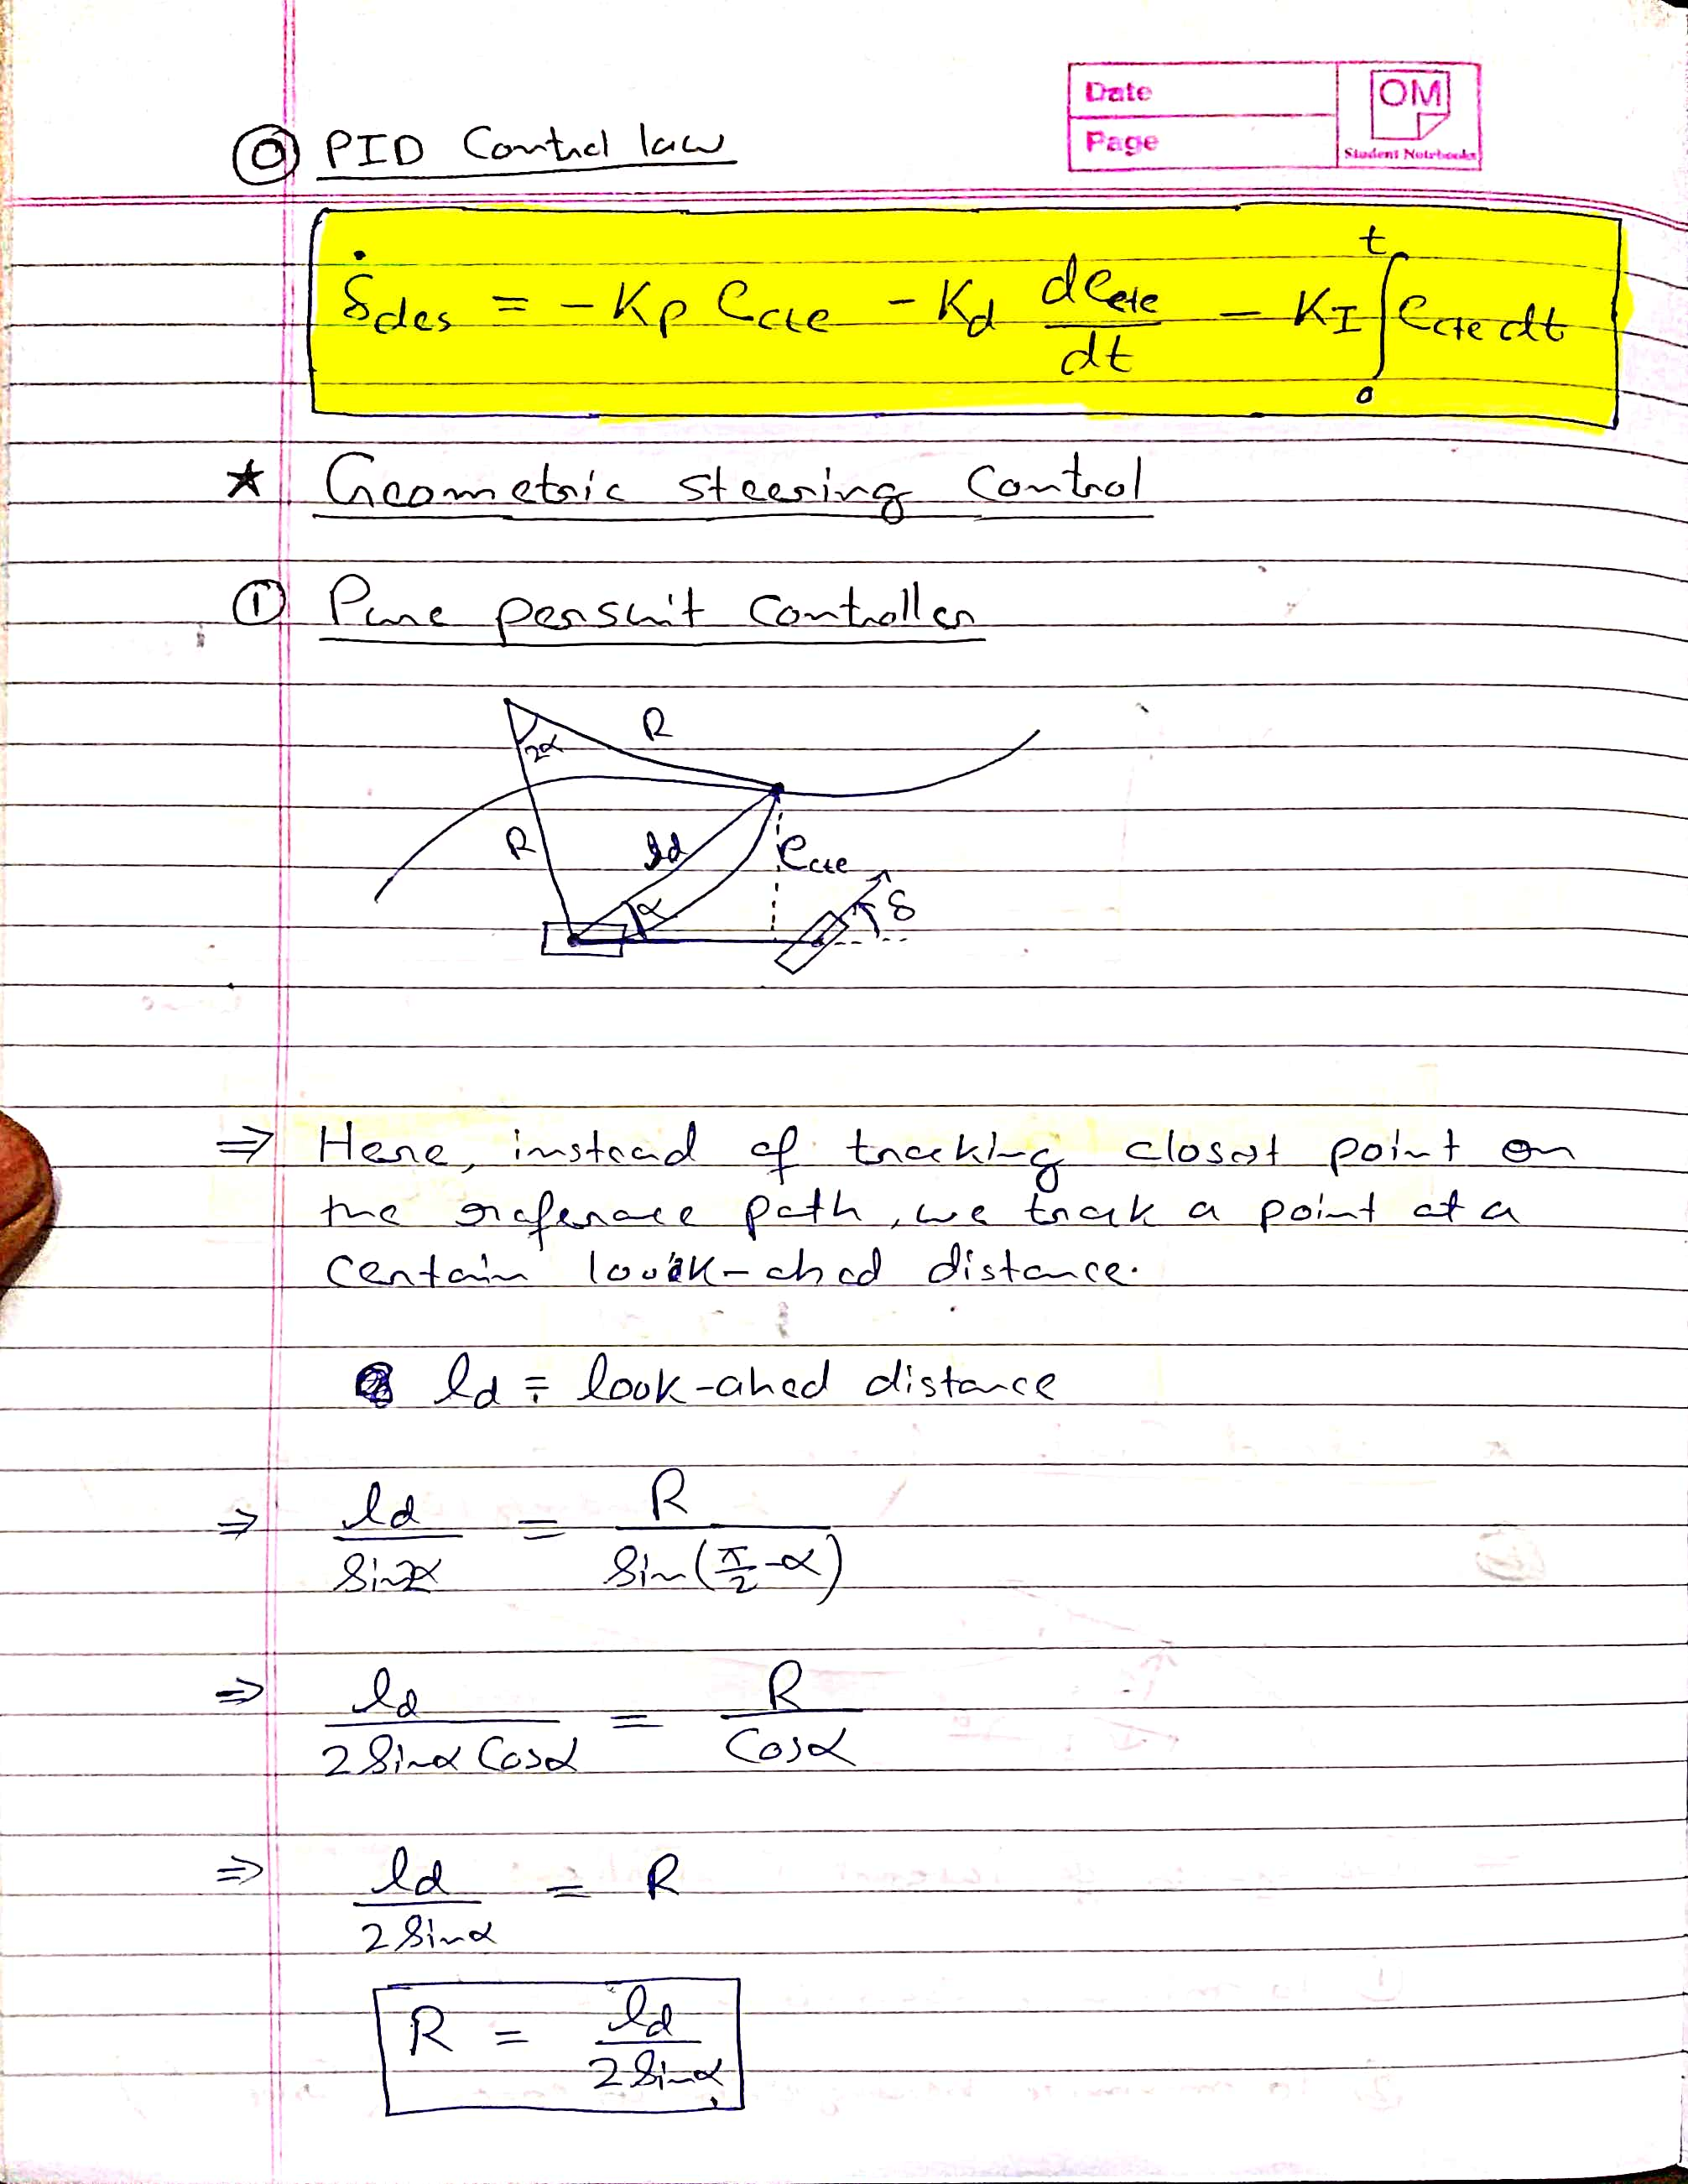 Date
Page
OM
Student Notebooks
⓪ PID Control law
δ̇des = -Kp ecte - Kd decte/dt - KI ∫₀ᵗ ecte dt
★ Geometric steering Control
① Pure persuit Controller
R
2α
R
ld
ecte
α
δ
⇒ Here, instead of tracking closest point on
the reference path, we track a point at a
certain look-ahed distance.
ld = look-ahed distance
⇒ ld/sin2α = R/sin(π/2-α)
⇒ ld/2sinα cosα = R/cosα
⇒ ld/2sinα = R
R = ld/2sinα